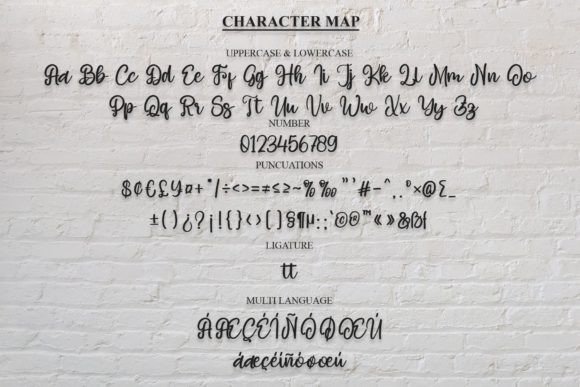 CHARACTER MAP
UPPERCASE & LOWERCASE
Aa Bb Cc Dd Ee Ff Gg Hh Ii Jj Kk Ll Mm Nn Oo
Pp Qq Rr Ss Tt Uu Vv Ww Xx Yy Zz
NUMBER
0123456789
PUNCUATIONS
$¢€£¥¤+*/÷<>=≠≤≥~%‰"'#-^,.°×@Σ_
±()¿?¡!{}<>[]§¶µ:;`©®™«»&ßf
LIGATURE
tt
MULTI LANGUAGE
ÁÆÇÉÍÑÓØŒÚ
áæçéíñóøœú